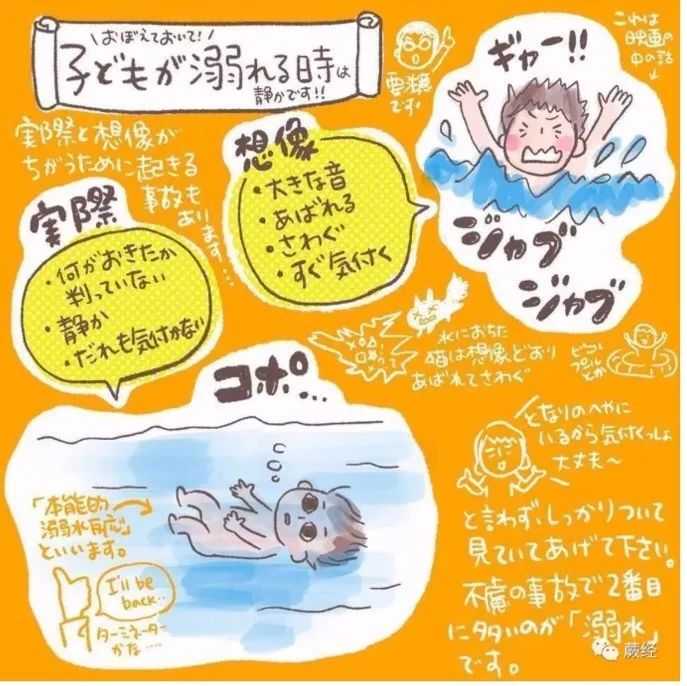 おぼえておいて!
子どもが溺れる時は
静かです!!
要注意
です!
これは
映画の
中の話
ギャー!!
実際と想像が
ちがうために起きる
事故も
あります…
想像
・大きな音
・あばれる
・さわぐ
・すぐ気付く
ジャブ
ジャブ
実際
・何がおきたか
判っていない
・静か
・だれも気付かない
水におちた
猫は想像どおり
あばれてさわぐ
ビニール
プール
とか
コポ…
「本能的
溺水反応」
といいます。
I'll be
back…
ターミネーター
かな……
となりのへやに
いるから気付くっしょ
大丈夫〜
と言わず、しっかりついて
見ていてあげて下さい。
不慮の事故で2番目
に多いのが「溺水」
です。
蕨经